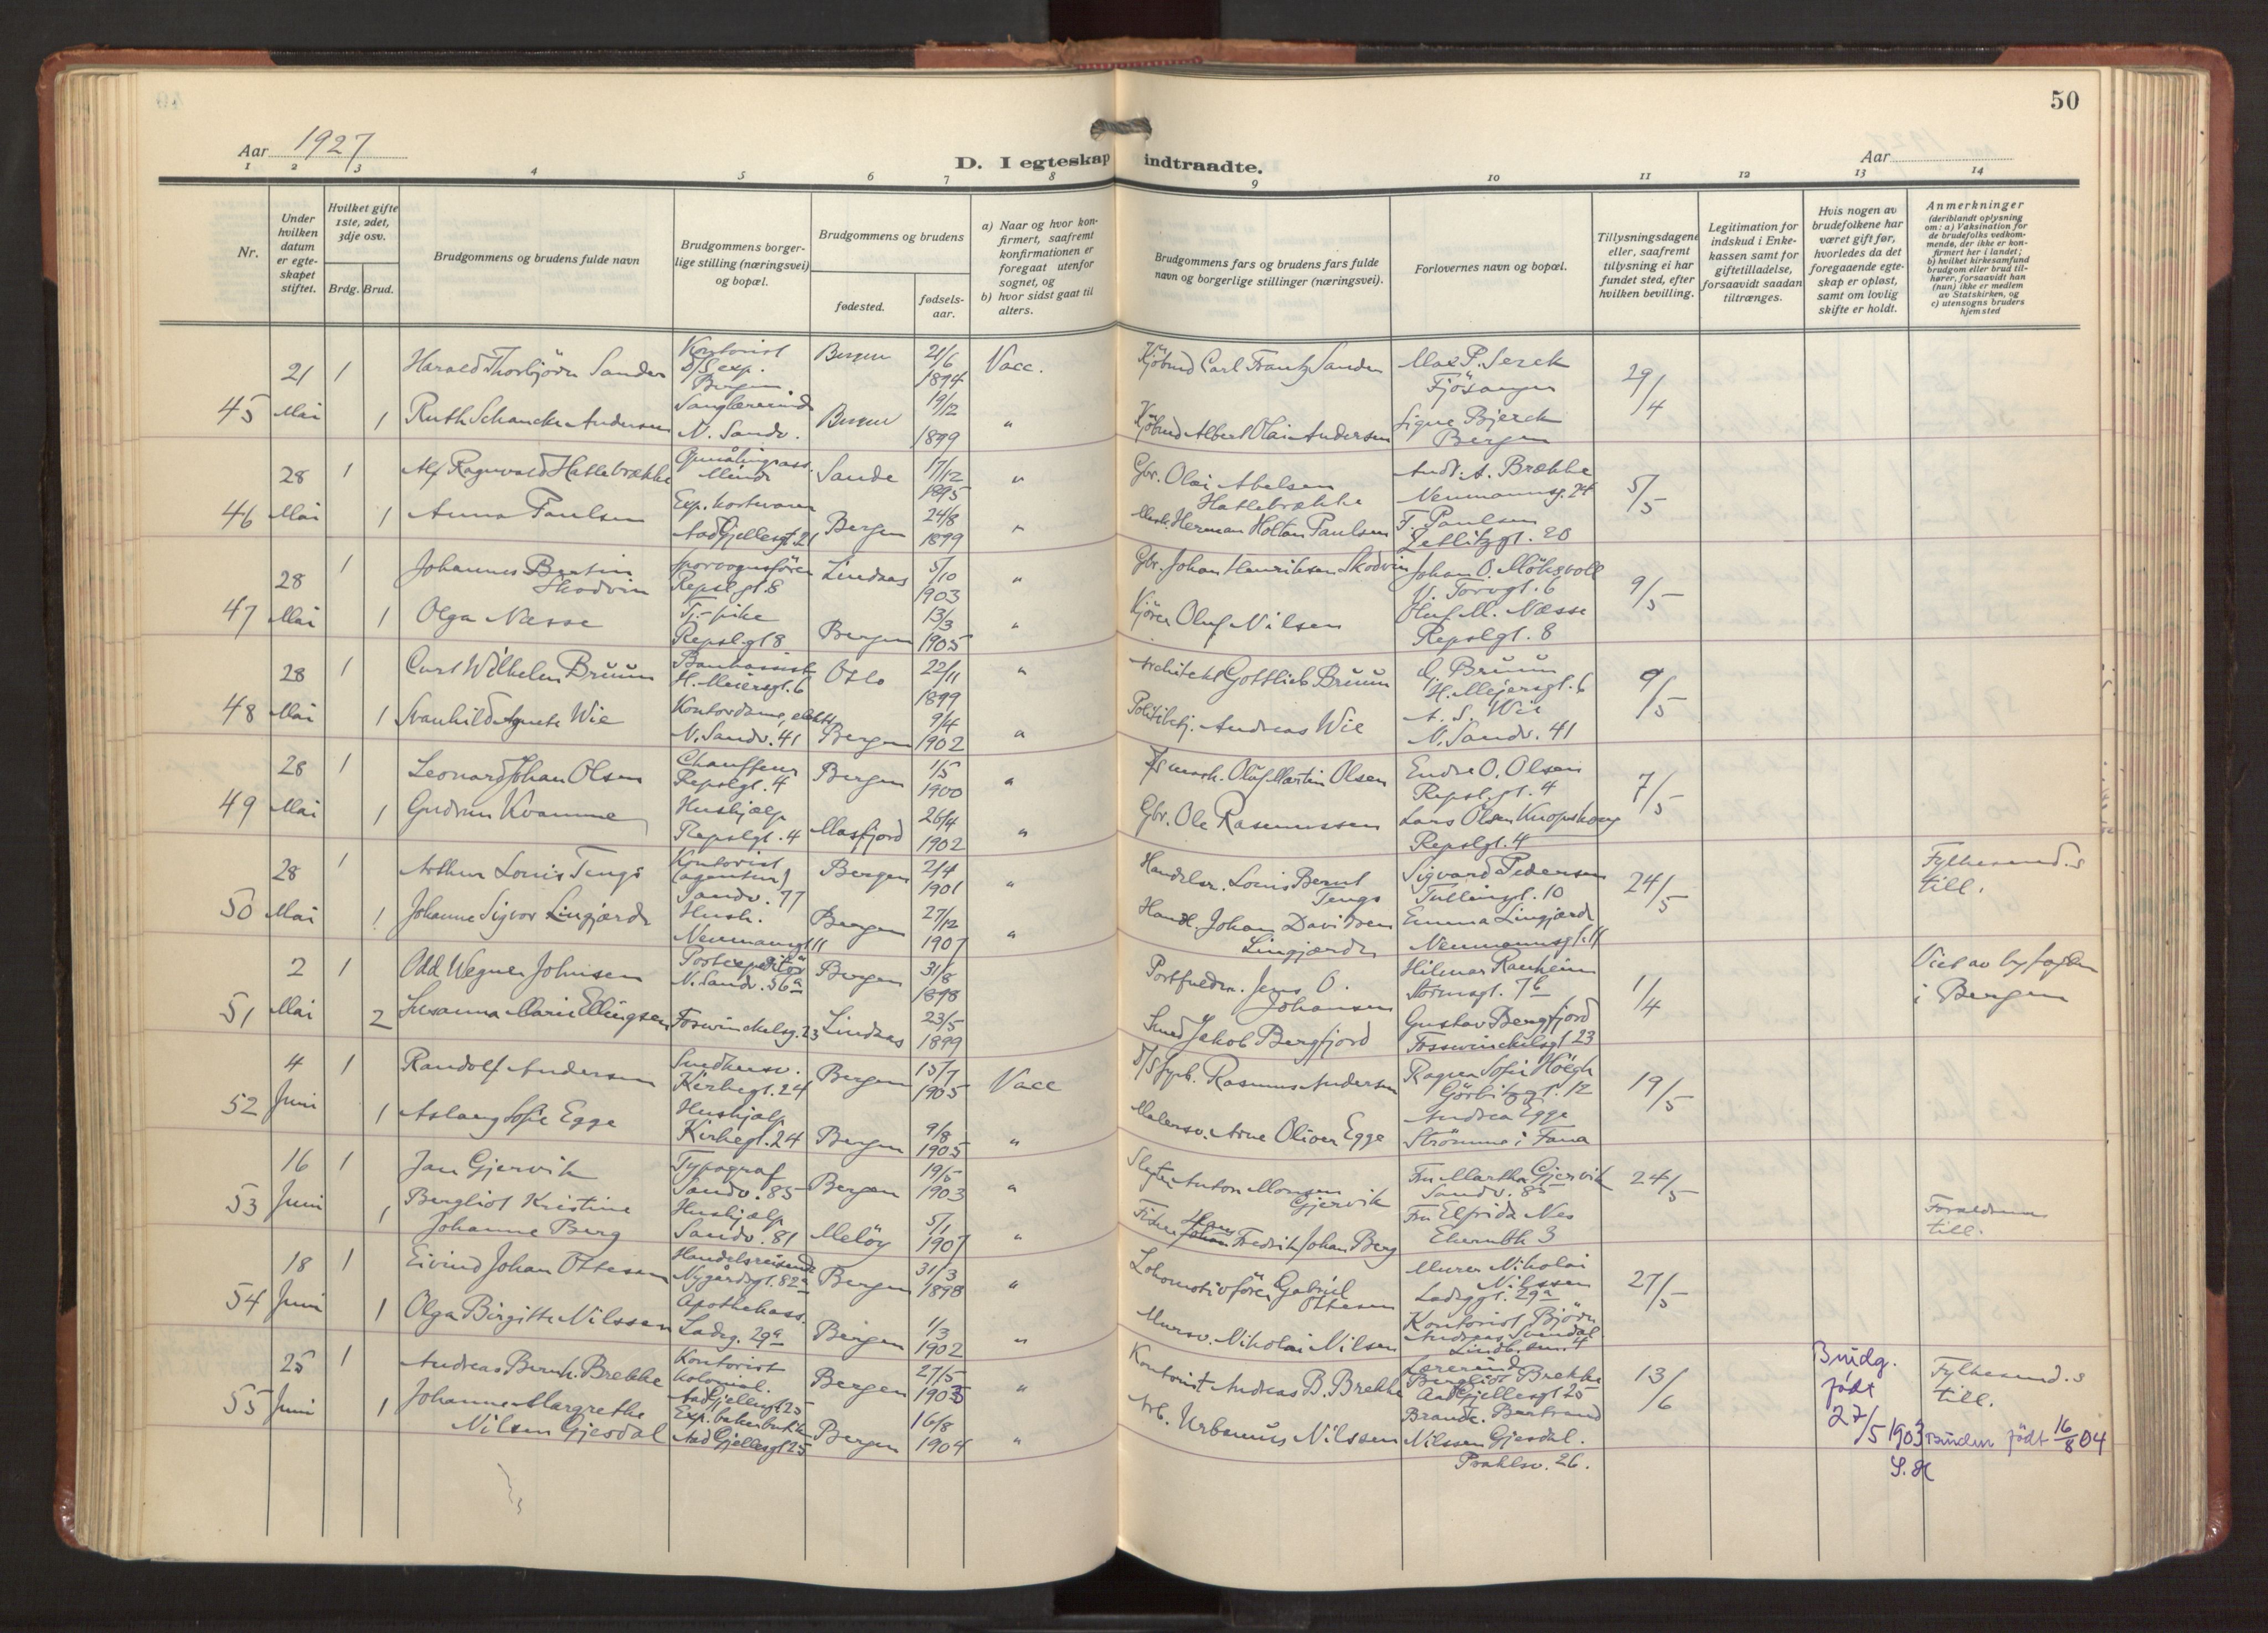 50
Aar 1927
D. I egteskap indtraadte.
Aar
1 2 3 4 5 6 7 8 9 10 11 12 13 14
Nr.
Under hvilken datum er egteskapet stiftet.
Hvilket gifte 1ste, 2det, 3dje osv.
Brdg. Brud.
Brudgommens og brudens fulde navn
Brudgommens borgerlige stilling (næringsvei) og bopæl.
Brudgommens og brudens
fødested.
fødselsaar.
a) Naar og hvor konfirmert, saafremt konfirmationen er foregaat utenfor sognet, og
b) hvor sidst gaat til alters.
Brudgommens fars og brudens fars fulde navn og borgerlige stillinger (næringsvei).
Forlovernes navn og bopæl.
Tillysningsdagene eller, saafremt tillysning ei har fundet sted, efter hvilken bevilling.
Legitimation for indskud i Enkekassen samt for giftetilladelse, forsaavidt saadan tiltrænges.
Hvis nogen av brudefolkene har været gift før, hvorledes da det foregaaende egteskap er opløst, samt om lovlig skifte er holdt.
Anmerkninger
(deriblandt oplysning om: a) Vaksination for de brudefolks vedkommende, der ikke er konfirmert her i landet;
b) hvilket kirkesamfund brudgom eller brud tilhører, forsaavidt han (hun) ikke er medlem av Statskirken, og
c) utensogns bruders hjemsted
45 21 Mai
1 Harald Thorbjörn Sanden Kontorist D/S exp. Bergen. Bergen 21/6 1894 Vacc. Kjöbmd Carl Frantz Sanden Max P. Serck Fjösanger 29/4
1 Ruth Schancke Andersen Sanglærerinde N. Sandv. Bergen 19/12 1899 " Kjöbmd Albert Olai Andersen Signe Bjerck Bergen
46 28 Mai
1 Alf Ragnvald Hatlebrække Opmålingsass. Minde Sande 17/12 1895 " Gbr. Olai Abelsen Hatlebrække Andr. A. Brække Neumannsg. 24 5/5
1 Anna Paulsen Exp. kortevarer Aad Gjellesgt 21 Bergen 24/8 1899 " Herman Holtan Paulsen F. Paulsen Zetlitzgt. 20
47 28 Mai
1 Johannes Bertin Skodvin Sporvognsförer Repslgt 8 Lindaas 5/10 1903 " Gbr. Johan Henriksen Skodvin Johan O. Möksvoll V. Torvgt. 6 9/5
1 Olga Næsse Tj.-pike Repslgt 8 Bergen 13/3 1905 " Kjörer Oluf Nilsen Oluf M. Næsse Repslgt. 8
48 28 Mai
1 Curt Wilhelm Bruun Bankassist H. Meiersgt. 6 Oslo 22/11 1899 " Architekt Gottlieb Bruun G. Bruun H. Mejersgt. 6 9/5
1 Svanhild Agnete Wie Kontordame, elektr. N. Sandv. 41 Bergen 9/4 1902 " Politibetj. Andreas Wie A. S. Wie N. Sandv. 41
49 28 Mai
1 Leonard Johan Olsen Chauffeur Repslgt. 4 Bergen 1/5 1900 " Oluf Martin Olsen Endre O. Olsen Repslgt. 4 7/5
1 Gudrun Kvamme Hushjælp Repslgt. 4 Masfjord 26/4 1902 " Gbr. Ole Rasmussen Lars Olsen Repslgt. 4
50 28 Mai
1 Arthur Louis Tengs Kontorist (agentur) Sandv. 77 Bergen 2/4 1901 " Handelsr. Louis Bernt Tengs Sigvard Pedersen Tullinsgt. 10 24/5 Fylkesmd.s till.
1 Johanne Sigvor Lingjærde Hush. Neumannsgt 11 Bergen 27/12 1907 " Handl. Johan Davidsen Lingjærde Emma Lingjærde Neumannsgt. 11
51 2 Mai
1 Odd Wegner Johnsen Postexpeditör N. Sandv. 36a Bergen 31/8 1898 Postfuldm. Jens O. Johansen Hilmar Ranheim Stormsgt. 7b 1/4 Viet av byfogden i Bergen
2 Susanna Marie Ellingsen Foswinckelsg. 23 Lindaas 23/5 1899 Smed Jakob Bergfjord Gustav Bergfjord Fosswinckelsgt 23
52 4 Juni
1 Randolf Andersen Smedsv. Kirkegt. 24 Bergen 15/7 1905 Vacc D/S fyrb. Rasmus Andersen Ragna Sofie Höegh Görbitzgt. 12 19/5
1 Aslaug Sofie Egge Hushjælp Kirkegt. 24 Bergen 9/8 1905 " Malersv. Arne Oliver Egge Andrea Egge Strömme i Fana
53 16 Juni
1 Jan Gjervik Typograf Sandv. 85 Bergen 19/5 1903 " Slagter Anton Monsen Gjervik Fru Martha Gjervik Sandv. 85 24/5
1 Bergliot Kristine Johanne Berg Hushjælp Sandv. 81 Melöy 5/1 1907 " Fisker Hans Fredrik Johan Berg Fru Elfrida Nes 3 Forældrenes till.
54 18 Juni
1 Eivind Johan Ottesen Handelsreisende Nygårdsgt. 82a Bergen 31/3 1898 " Lokomotivförer Gabriel Ottesen Murer Nikolai Nilssen Ladegt. 29a 27/5
1 Olga Birgitte Nilssen Apothekass. Ladeg. 29a Bergen 1/3 1902 " Mursv. Nikolai Nilsen Kontorist Björn Andreas Svendal
55 25 Juni
1 Andreas Bernh. Brekke Kontorist kolonial. Aad Gjellesgt 25 Bergen 27/5 1903 " Kontorist Andreas B. Brekke Lærerinde Bergliot Brekke Aad Gjellesgt 25 13/6 Brudg. født 27/5 1903 Fylkesmd.s till.
1 Johanne Margrethe Nilsen Gjesdal Exp. bakerbutik Aad Gjellesgt 25 Bergen 16/8 1904 " Arb. Urbanus Nilssen Brandk. Bertrand Nilssen Gjesdal. Prahlsv. 26. Bruden født 16/8 04
S.H